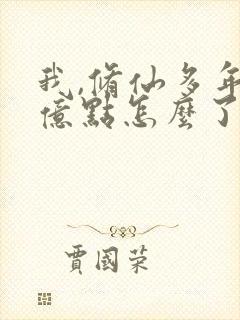 我,脩仙多年
億點怎麼了
賈國荣